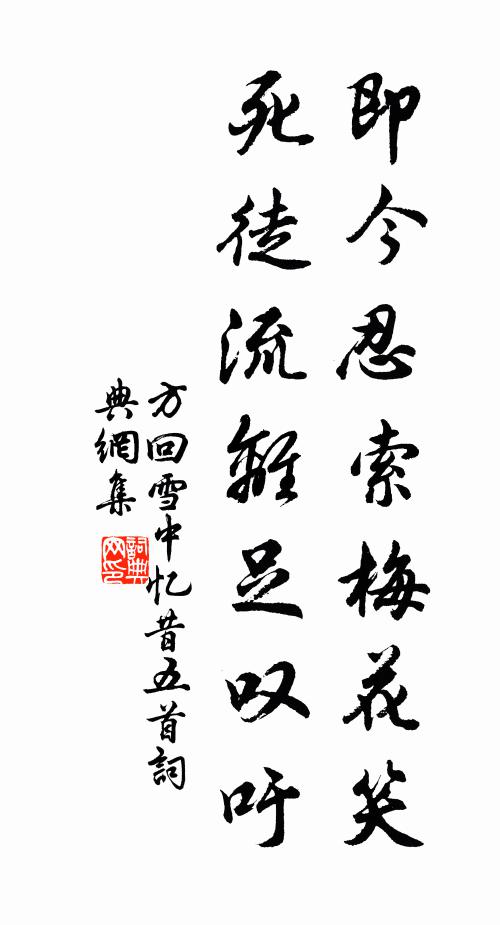 即今忍索梅花笑
死徒流離足叹吁
方回雪中忆昔五首詞
典網集
詞典网印